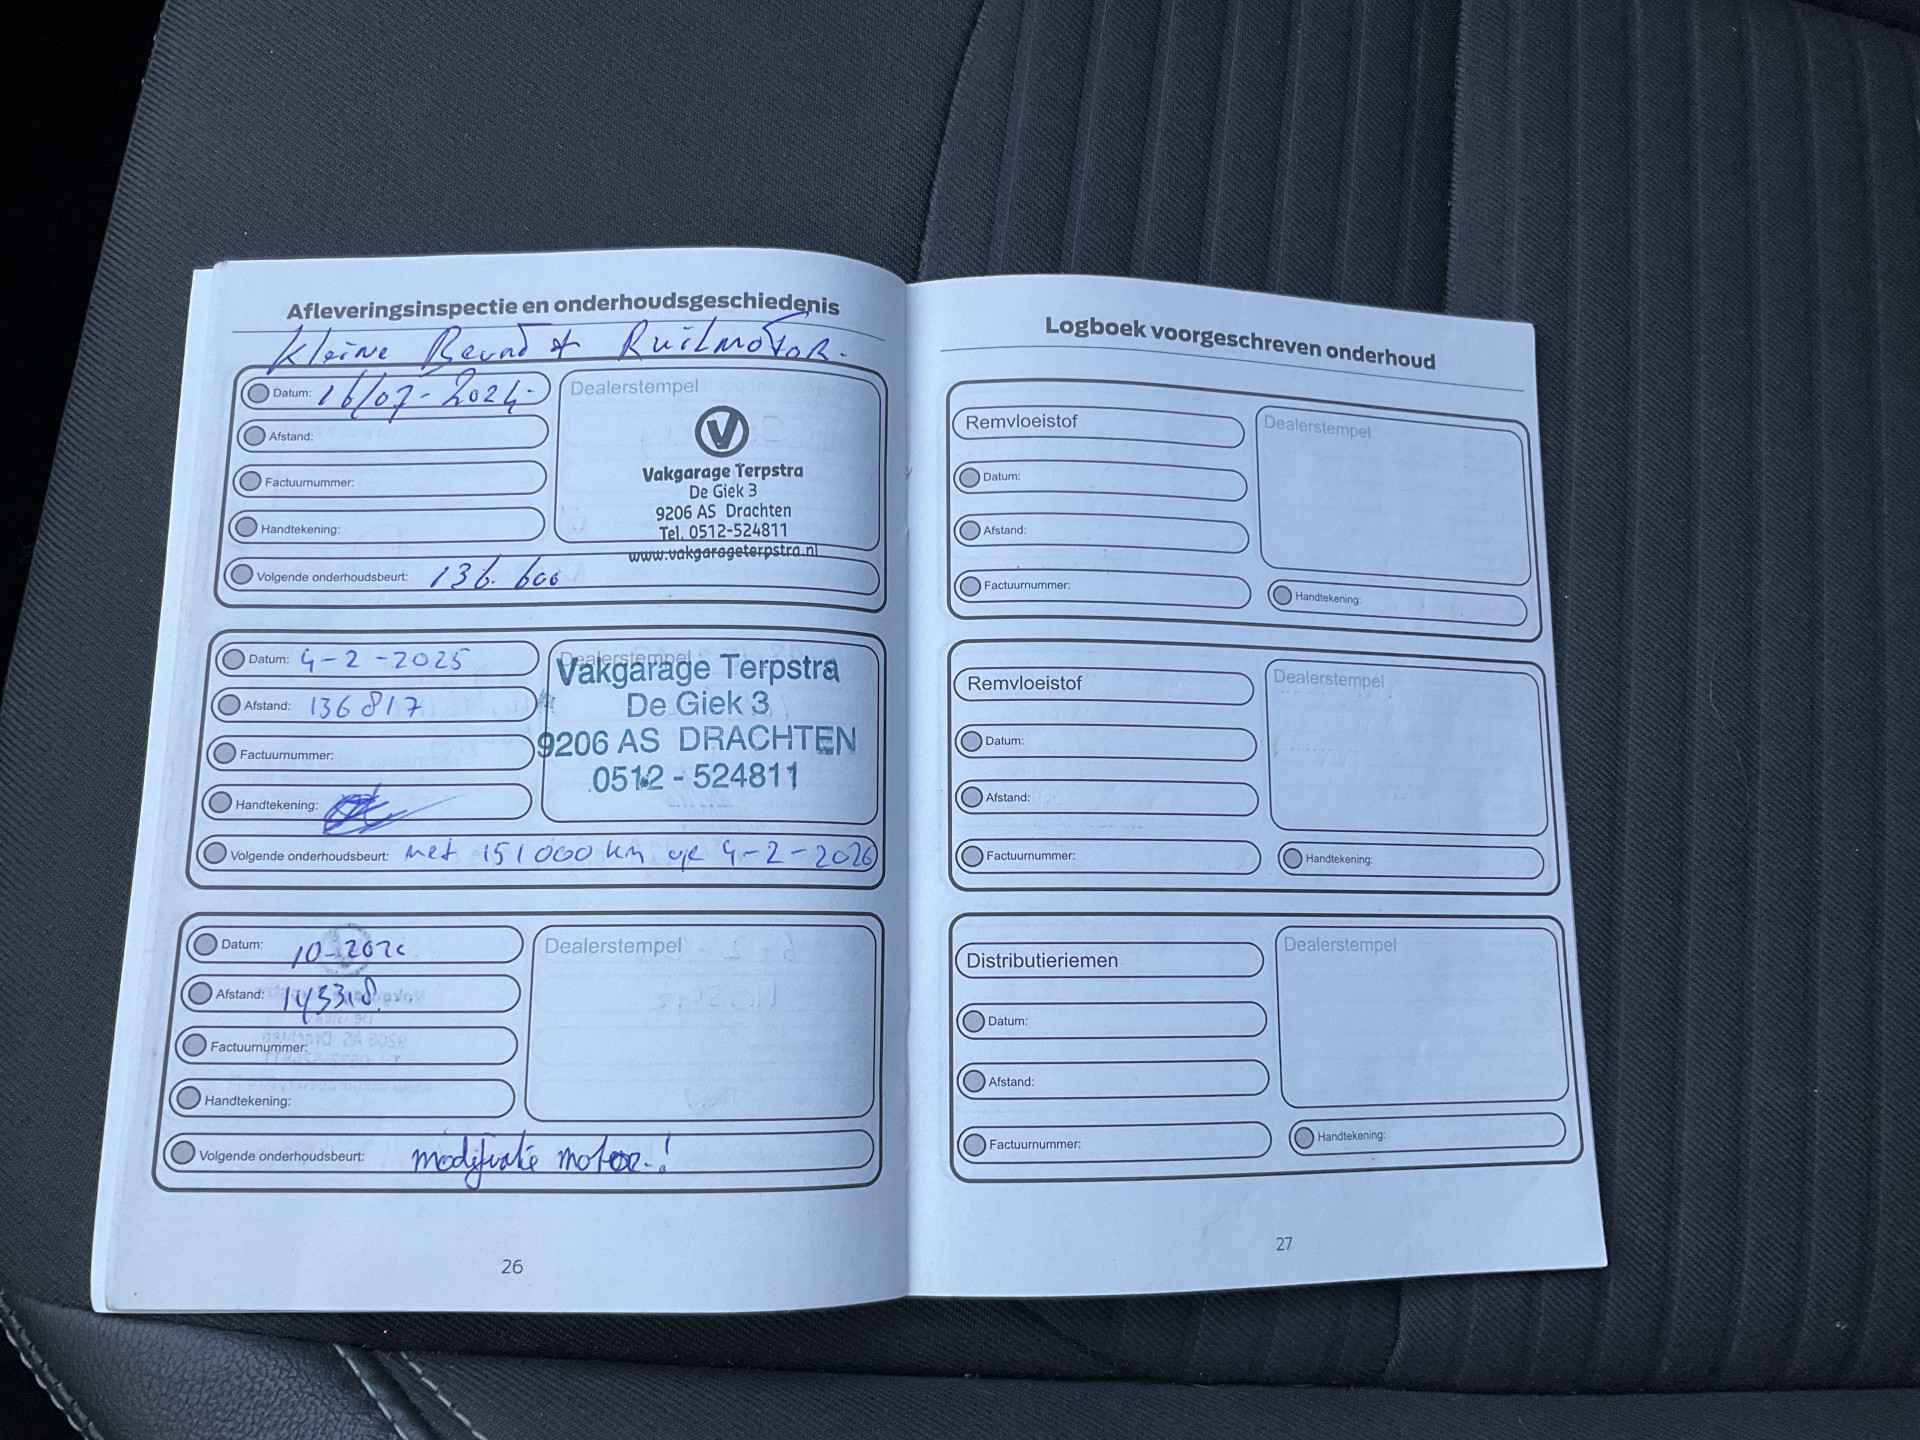 Afleveringsinspectie en onderhoudsgeschiedenis
Kleine Beurt + Ruilmotor.
Datum: 16/07-2024-
Dealerstempel
Afstand:
Factuurnummer:
Handtekening:
Vakgarage Terpstra
De Giek 3
9206 AS Drachten
Tel. 0512-524811
www.vakgarageterpstra.nl
Volgende onderhoudsbeurt: 136.600
Datum: 4-2-2025
Dealerstempel
Afstand: 136817
Factuurnummer:
Handtekening:
Vakgarage Terpstra
De Giek 3
9206 AS DRACHTEN
0512-524811
Volgende onderhoudsbeurt: met 151000 km of 4-2-2026
Datum: 10-
Dealerstempel
Afstand:
Factuurnummer:
Handtekening:
Volgende onderhoudsbeurt: modificatie motor.!
26
Logboek voorgeschreven onderhoud
Remvloeistof
Dealerstempel
Datum:
Afstand:
Factuurnummer:
Handtekening:
Remvloeistof
Dealerstempel
Datum:
Afstand:
Factuurnummer:
Handtekening:
Distributieriemen
Dealerstempel
Datum:
Afstand:
Factuurnummer:
Handtekening:
27